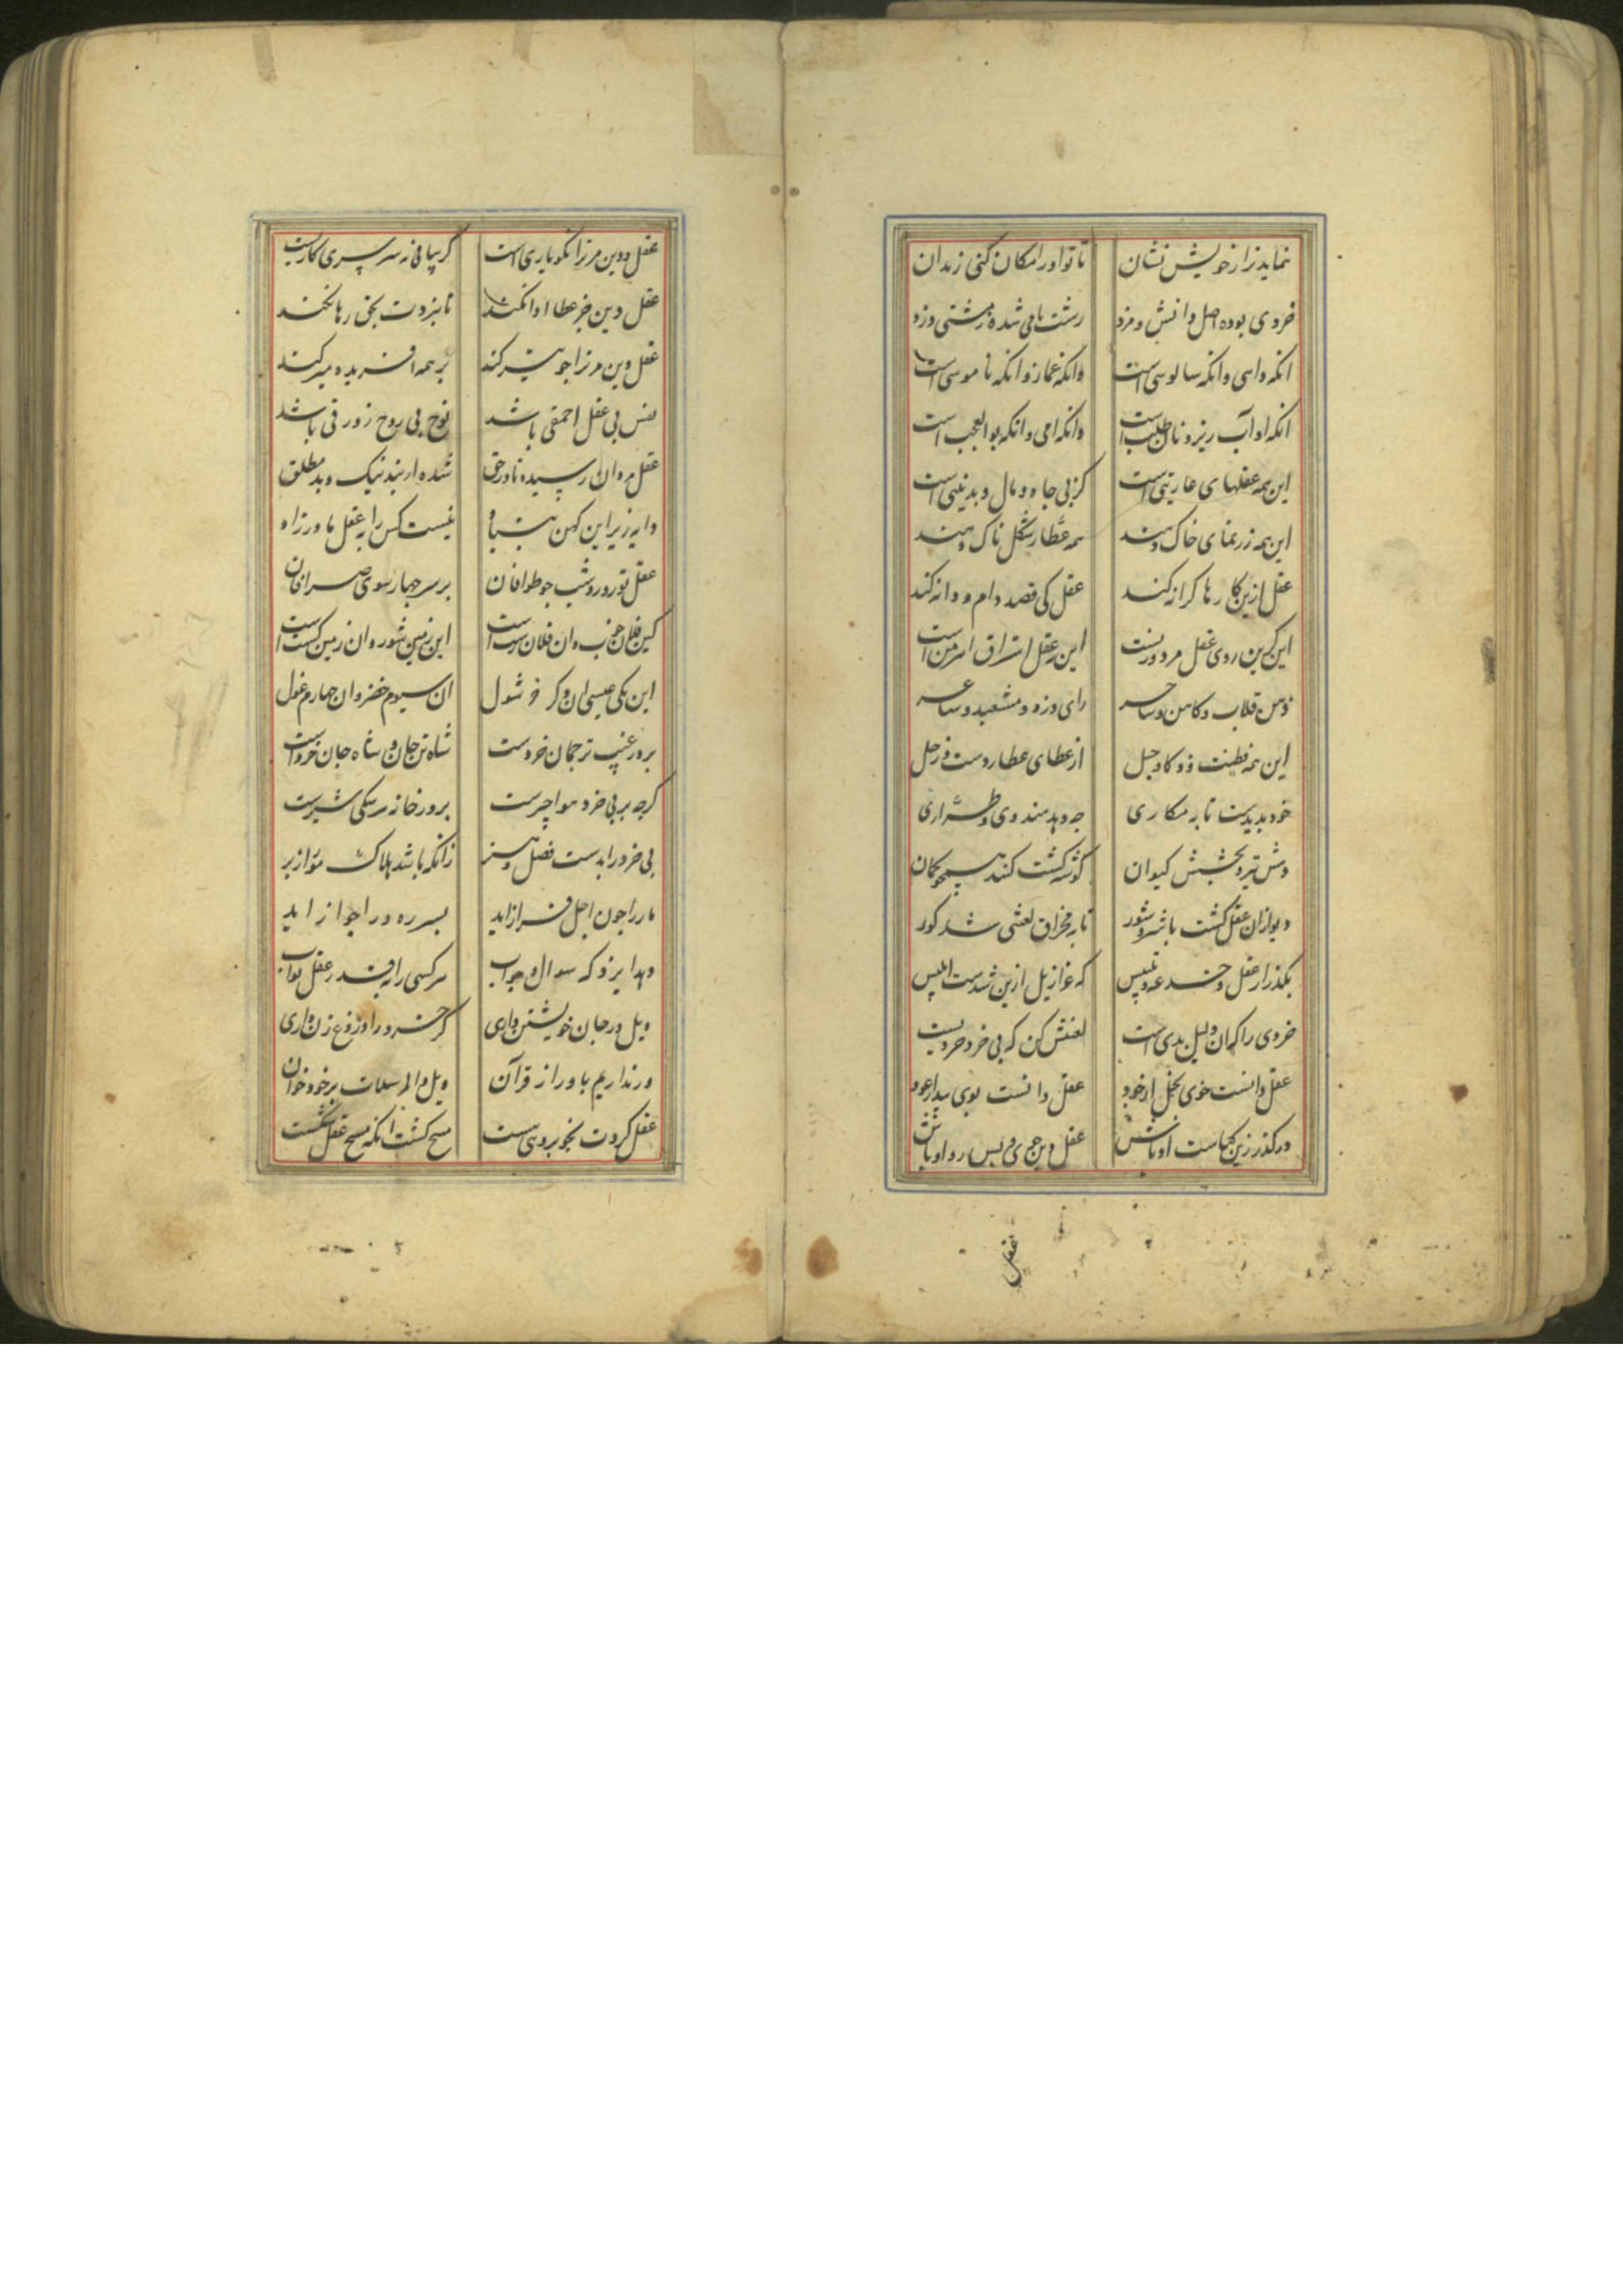 نماید ترا ز خویش نشان تا تو او را مکان کنی زندان
خردی بوده اصل دانش و مزد رشت نامی شده
انکه داهی و انکه سالوسی است وانکه غماز و انکه ناموسی است
انکه او آب ریز و نان طلب است وانکه امی و انکه بوالعجب است
این همه عقلهای عاریتی است کز پی جاه و مال و بدنیتی است
این همه زرنمای خاک دهند همه عطار شکل ناک دهند
عقل ازین کارها کرانه کند عقل کی قصد دام و دانه کند
این کزین روی عقل مرد ورنست این نه عقل
ذهن قلاب و کاهن و ساحر رای دزد و مشعبد و شاعر
این همه فطنت و ذکا و حیل از عطای عطاردست و زحل
خود بدیدست تا به مکاری چه دهد هندوی و طراری
دهش تیر و بخشش کیوان کوشه کشت کنند همچو کمان
دیو ازان عقل کشت با شر و شور تا به مخراق لعنتی شد کور
بکذر از عقل و خدعه و تلبیس که عزازیل ازین شدست ابلیس
خردی را که ان دلیل بدی است لعنتش کن که بی خرد خردیست
عقل دانست خوی بخل از خود عقل دانست بوی بید از عود
درکذر زین کیاست اوباش عقل دین جوی و پس رو او باش
عقل
عقل و دین مر ترا نکو یاری است کر بیابی نه سرسری کاریست
عقل دین جز عطا ادا نکند تا بنزدت بحق رها نکند
عقل دین مر ترا چو تیر کند بر همه افریده میر کند
نفس بی عقل احمقی باشد نوح بی روح زورقی باشد
عقل مردان رسیده تا در حق شده از بند نیک و بد مطلق
دایه زیر این کهن بنیاد نیست کس را به عقل مادرزاد
عقل تو روز و شب چو طوافان بر سر چهار سوی صرافان
کین فلان خوب وان فلان زشت است این زمین شور وان زمین کشت است
این یکی عیسی ان دکر خر شول ان سیوم خضر وان چهارم غول
بر در غیب ترجمان خردست شاه تن جان و شاه جان خردست
کرچه بر بی خرد هوا چیرست بر در خانه هر سکی شیرست
بی خرد را بدست فضل و هنر زانکه باشد هلاک مور از پر
مار را چون اجل فراز اید بسر ره ورا جواز اید
دهد ایزد که سوال و جواب هر کسی را به قدر عقل ثواب
ویل در جان خویشتن داری کر خرد را دروغ زن داری
ور نداریم باور از قرآن ویل والمرسلات بر خود خوان
عقل کردت بخوبروی مست مسخ کشت انکه مسخ عقل شکست